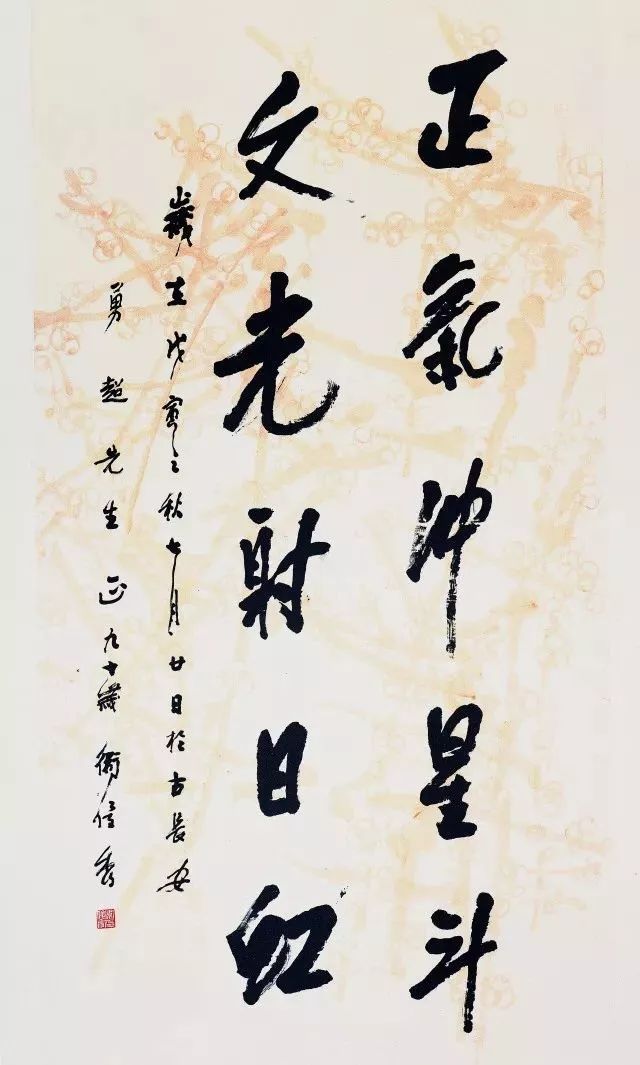 正氣冲星斗
文光射日虹
歲在戊寅之秋七月廿日於古長安
勇超先生 正 九十歲 衛俊秀